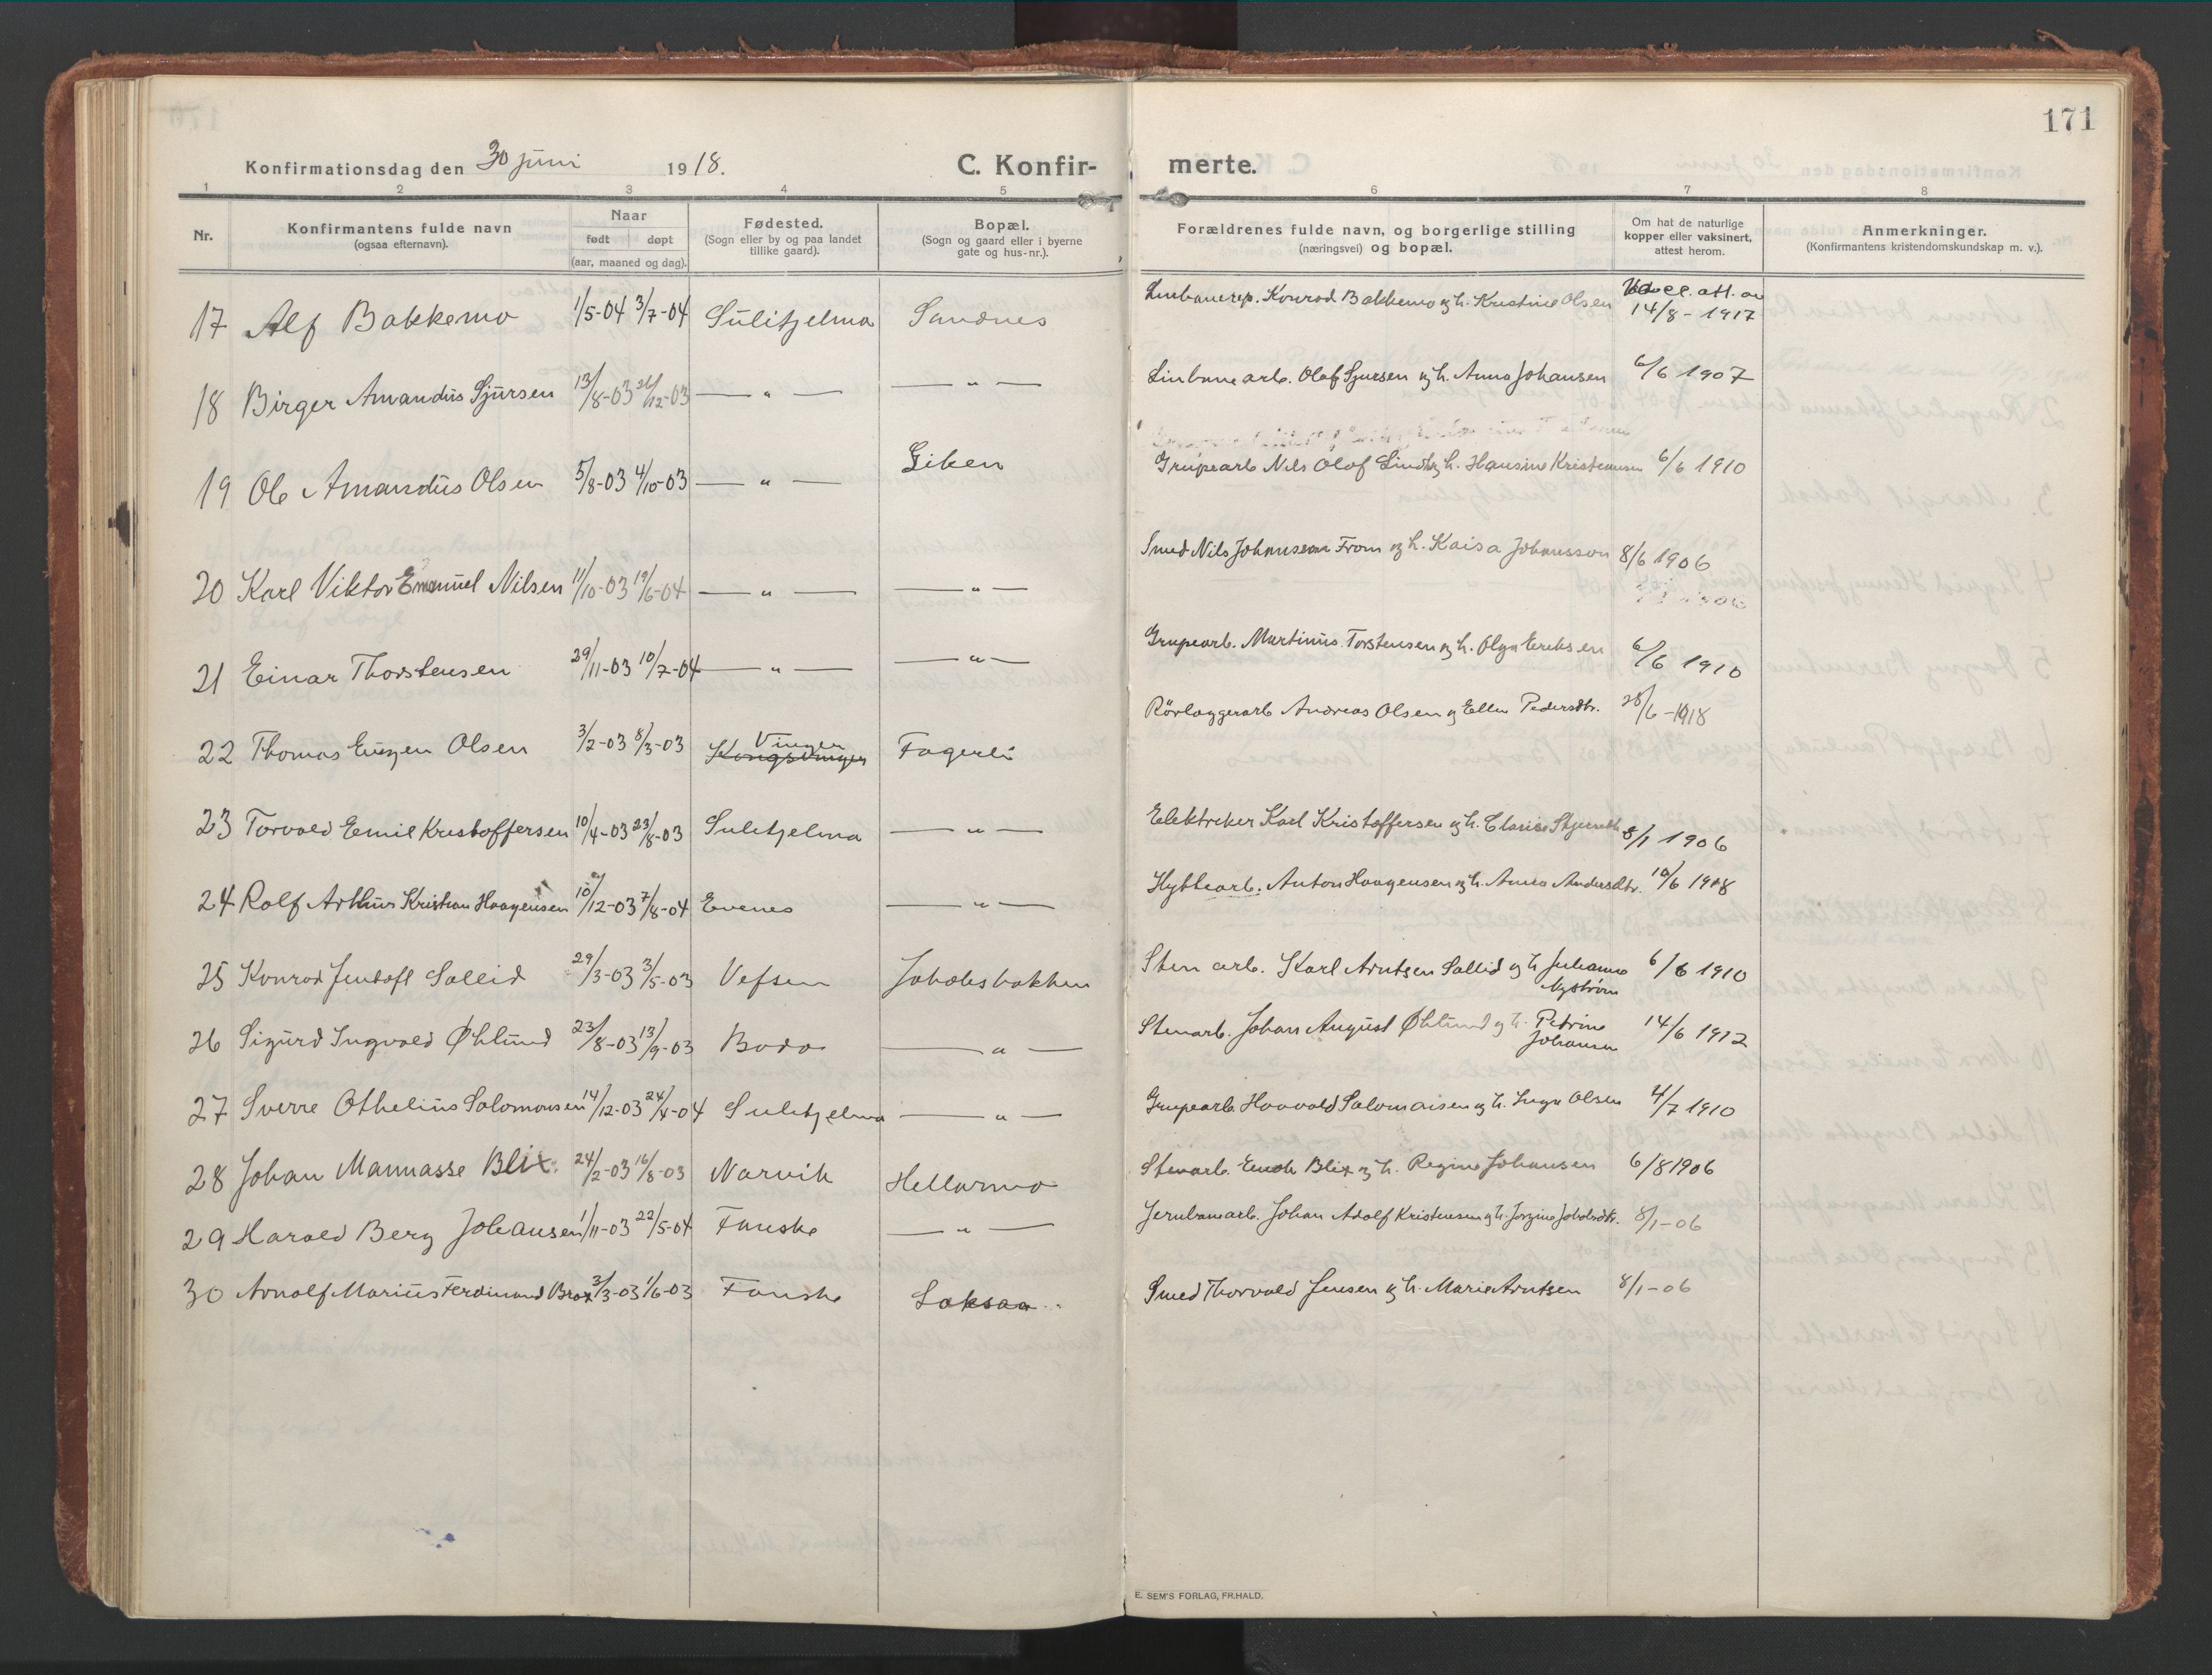 171
Konfirmationsdag den 30 juni 1918. C. Konfirmerte.
1 2 3 4 5 6 7 8
Nr. Konfirmantens fulde navn (ogsaa efternavn). Naar født døpt (aar, maaned og dag). Fødested. (Sogn eller by og paa landet tillike gaard). Bopæl. (Sogn og gaard eller i byerne gate og hus-nr.). Forældrenes fulde navn, og borgerlige stilling (næringsvei) og bopæl. Om hat de naturlige kopper eller vaksinert, attest herom. Anmerkninger. (Konfirmantens kristendomskundskap m. v.).
17 Alf Bakkemo 1/5-04 3/7-04 Sulitjelma Sandnes Linbanerep. Konrod Bakkemo og h. Kristine Olsen Vacc. att. av 14/8-1917
18 Birger Amandus Sjursen 13/8-03 26/12-03 — " — — " — Linbanearb. Olaf Sjursen og h. Anna Johansen 6/6 1907
19 Ole Amandus Olsen 5/8-03 4/10-03 — " — Giken Grupearb Nils Olof Lind og h. Hansine Kristensen 6/6 1910
20 Karl Viktor Emanuel Nilsen 11/10-03 19/6-04 — " — — " — Smed Nils Johansson From og h. Kaisa Johansson 8/6 1906
21 Einar Thorstensen 29/11-03 10/7-04 — " — — " — Grupearb. Martinus Torstensen og h. Olga Ereksen 6/6 1910
22 Thomas Eugen Olsen 3/2-03 8/3-03 Vinger Kongsvinger Fagerli Rörlaggerarb Andreas Olsen og Ellen Pedersdtr. 28/6-1918
23 Torvald Emil Kristoffersen 10/4-03 23/8-03 Sulitjelma — " — Elektriker Karl Kristoffersen og h. 8/1 1906
24 Rolf Arthur Kristian Haagensen 10/12-03 7/8-04 Evenes — " — Hyttearb. Anton Haagensen og h. Anna Andersdtr. 10/6 1918
25 Konrad Jentoft Sollid 29/3-03 3/5-03 Vefsen Jakobsbakken Sten arb. Karl Arntsen Sollid og h Julianne Nystrøm 6/6 1910
26 Sigurd Ingvald Øhlund 23/8-03 13/9-03 Bodø — " — Stenarb. Johan August Øhlund og h. Petrine Johansen 14/6 1912
27 Sverre Othelius Salomonsen 14/12-03 24/4-04 Sulitjelma — " — Grupearb. Haavald Salomonsen og h. Inga Olsen 4/7 1910
28 Johan Mannasse Blix. 24/2-03 16/8-03 Narvik Hellarmo Stenarb. Enok Blix og h. Regine Johansen 6/8 1906
29 Harald Berg Johansen 1/11-03 22/5-04 Fauske — " — Jernbanearb. Johan Adolf Kristensen og h. Jorgine Jakobsdtr. 8/1-06
30 Arnolf Marius Ferdinand Brox 3/3-03 1/6-03 Fauske Laksaa Smed Thorvald Jensen og h. Marie Arntsen 8/1-06
E. SEM'S FORLAG, FR.HALD.